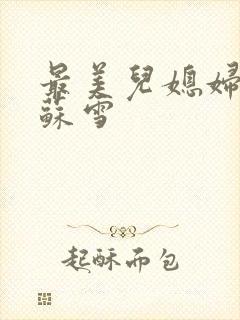 最美兒媳婦
蘇雪
起酥而包